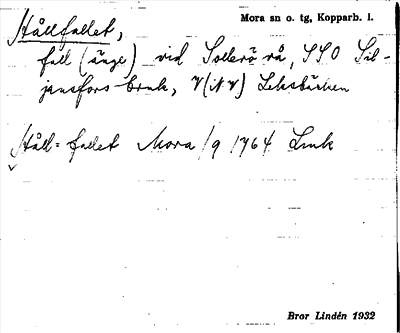 Mora sn o. tg, Kopparb. l.
Stållfallet,
fall (änge) vid Sollerö rå, SSO Sil-
jansfors bruk, V(NV) Leksbäcken
Ståll=fallet Mora 1/9 1764 Lmk
Bror Lindén 1932